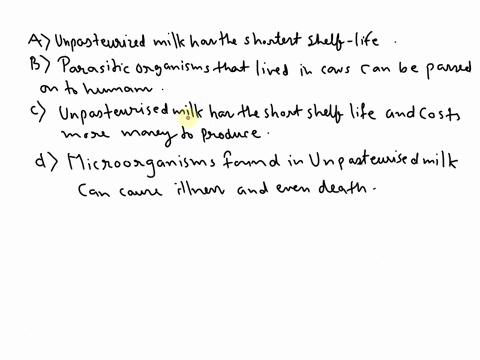 A) Unpasteurized milk has the shortest shelf-life .
B) Parasitic organisms that lived in cows can be passed
on to humans.
c) Unpasteurised milk has the short shelf life and costs
more money to produce.
d) Microorganisms found in Unpasteurised milk
Can cause illness and even death.